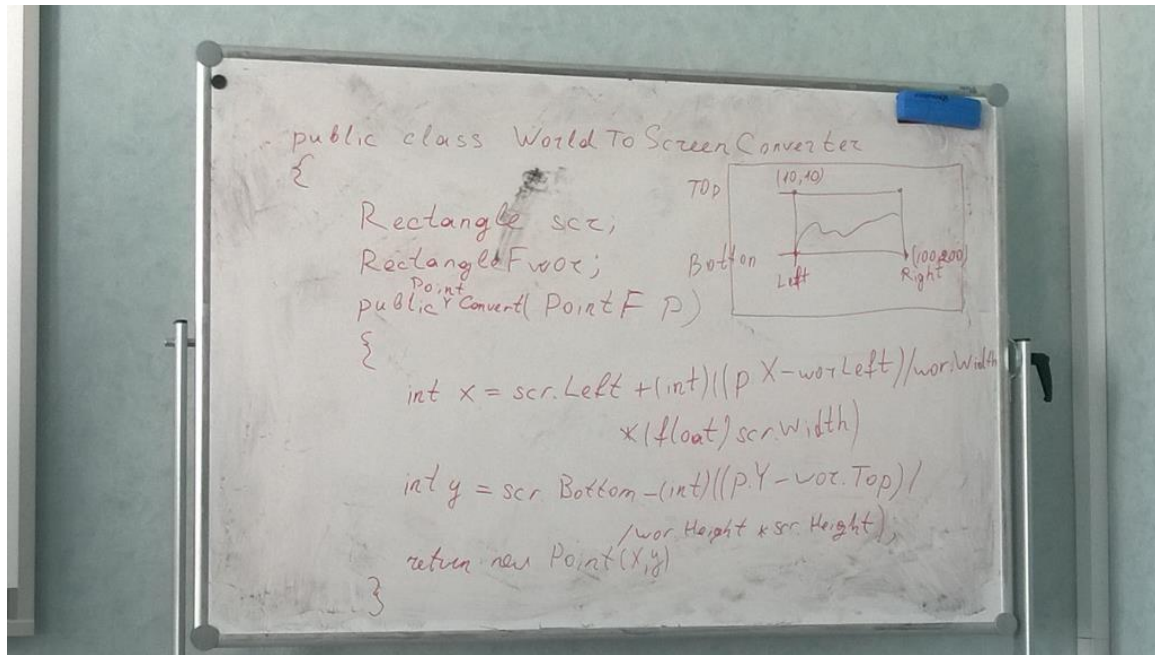 public class WorldToScreenConverter
{
Rectangle scr;
RectangleF wor;
Point
public Convert( PointF p)
{
int x = scr.Left +(int)((p X-wor Left)/wor.Width
*(float) scr.Width)
int y = scr. Bottom -(int)((p.Y - wor.Top)/
/wor Height * scr. Height);
return new Point(x,y)
}
TOp
(10,10)
Botton
(100,200)
Left
Right